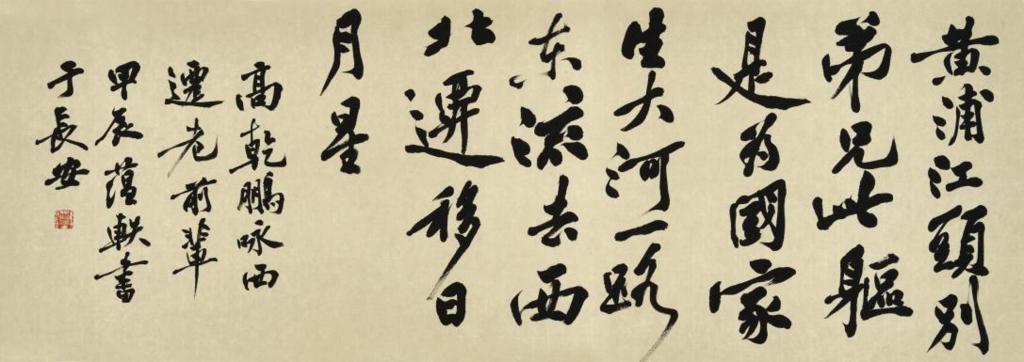 黄浦江頭別
弟兄此軀
是为國家
生大河一路
东流去西
北遷移日
月星
高乾鵬咏西
遷老前輩
甲辰蕴軼書
于長安